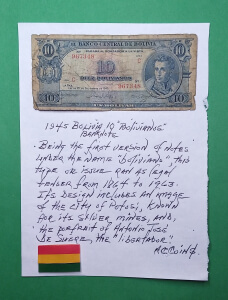 EL BANCO CENTRAL DE BOLIVIA
10 10
967349
10
DIEZ BOLIVIANOS
967349
10 10
1945 BOLIVIA 10 "BOLIVIANOS"
BANKNOTE
BEING THE FIRST VERSION OF NOTES
UNDER THE NAME "BOLIVIANO" THIS
TYPE OR ISSUE RAN AS LEGAL
TENDER FROM 1864 TO 1963.
ITS DESIGN INCLUDES AN IMAGE
OF THE CITY OF POTOSI, KNOWN
FOR ITS SILVER MINES, AND,
THE PORTRAIT OF ANTONIO JOSÉ
DE SUCRE, THE "LIBERTADOR".